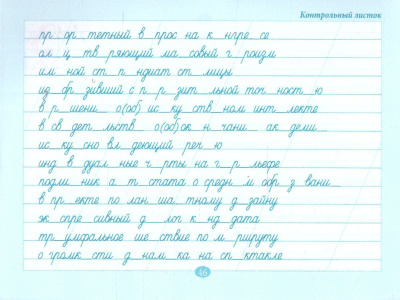 Контрольный листок
пр_ор_тетный в_прос на к_нгре_се
ол_ц_тв_ряющий ма_совый г_роизм
им_ной ст_п_ндиат ст_лицы
из_бр_зивший с п_р_зит_льной точ_ност_ю
в р_шени_ о(об) ис_ку_ств_ном инт_лекте
в св_дет_льств_ о(об) ок_нчани_ ак_деми_
ис_ку_сно вл_деющий реч_ю
инд_в_дуал_ные ч_рты на г_р_льефе
подли_ник а_т_стата о средн_м обр_з_вани_
в пр_екте по лан_ша_тному д_зайну
эк_спре_сивный д_лог к_нд_дата
тр_умфальное ше_ствие по м_ршруту
о громк_сти д_нам_ка на сп_ктакле
46